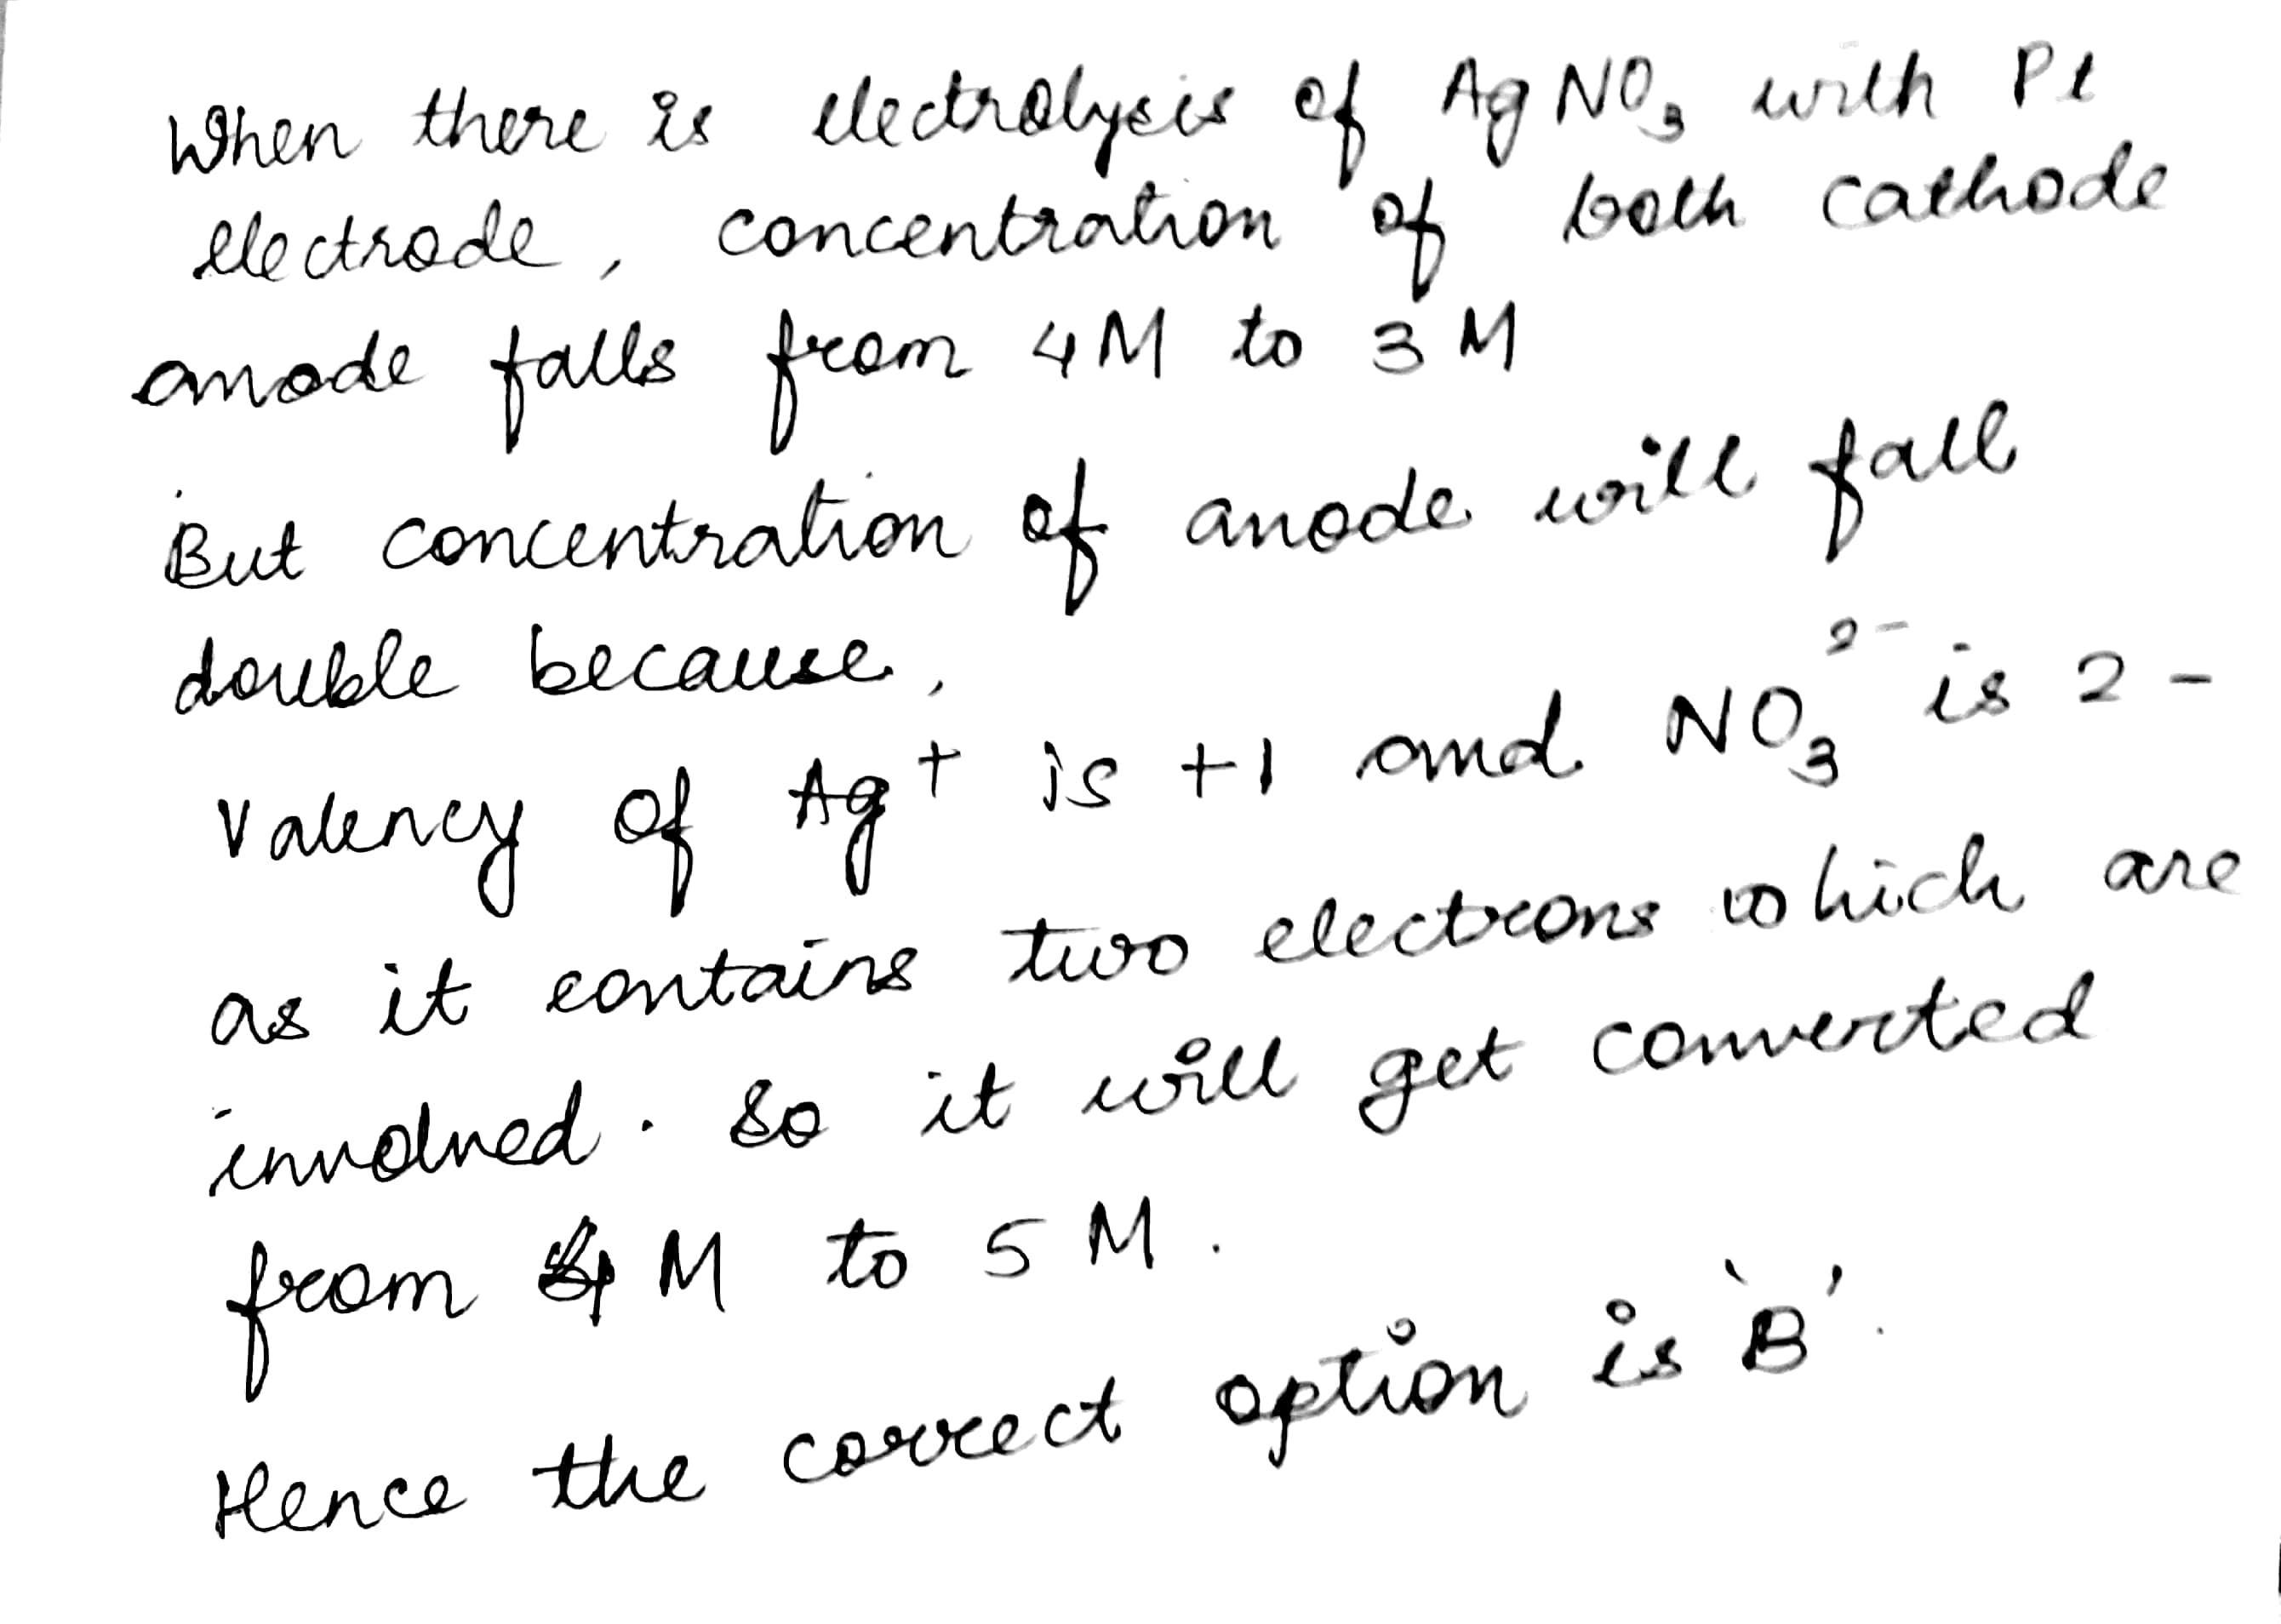 When there is electrolysis of AgNO₃ with Pt
electrode, concentration of both cathode
anode falls from 4M to 3M
But concentration of anode will fall
double because,
Valency of Ag⁺ is +1 and NO₃²⁻ is 2-
as it contains two electrons which are
involved. So it will get converted
from 4 M to 5 M.
Hence the correct option is 'B'.